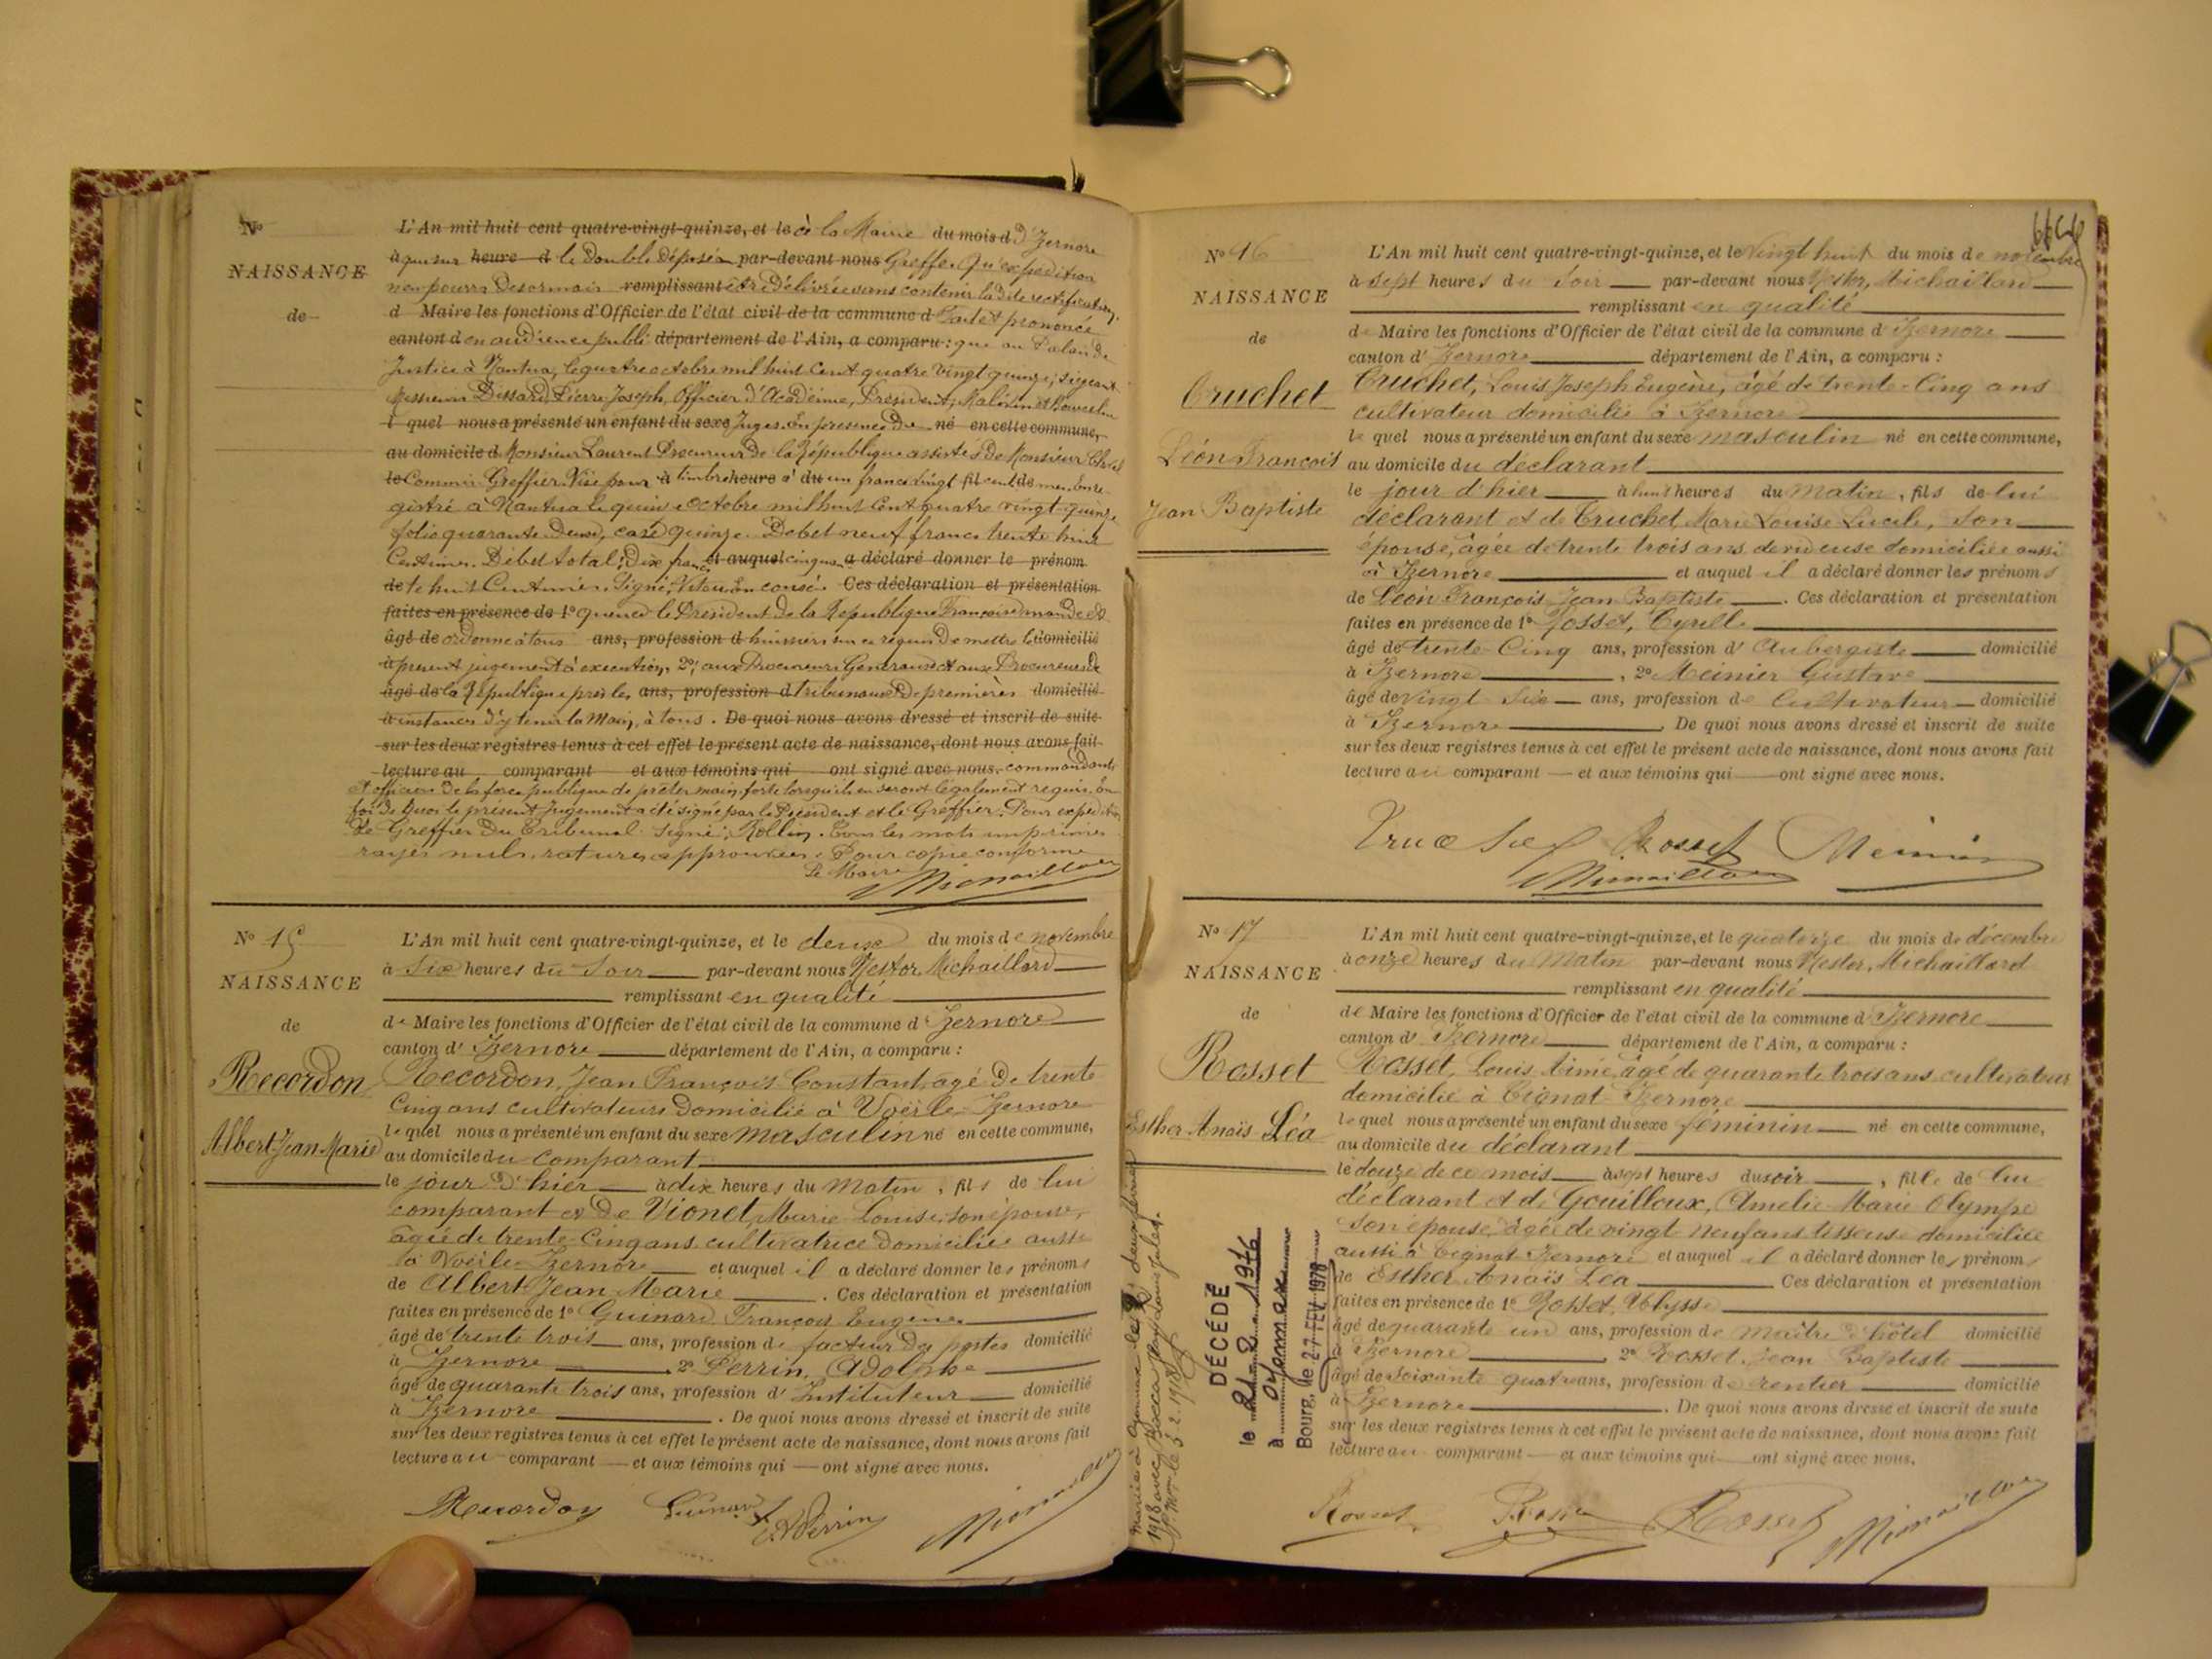 N°
NAISSANCE
de
L'An mil huit cent quatre-vingt-quinze, et le à la Mairie du mois d D'Izernore
à qui sur heure d le double déposé par-devant nous Greffe. Qu'expédition
n'en pourra désormais remplissant être délivrée sans contenir la dite rectification.
d Maire les fonctions d'Officier de l'état civil de la commune d Fait et prononcé
canton d en audience publi département de l'Ain, a comparu : que au Palais de
Justice à Nantua, le quatre octobre mil huit cent quatre vingt quinze; siégeant
Messieurs Dessard, Pierre Joseph, Officier d'Académie, Président;
l quel nous a présenté un enfant du sexe Juges. En présence de né en cette commune,
au domicile d Monsieur Laurent Procureur de la République assistés de Monsieur
le Commis Greffier. Visé pour à timbre heure s du un franc vingt fil cent de mes. Enre-
gistré à Nantua le quinze Octobre mil huit cent quatre vingt-quinze,
folio quarante Deux, case quinze. Debet neuf francs trente huit
Centimes. Debet total: Dix francs et auquel cinquan a déclaré donner le prénom
de te huit Centimes. Signé, En consé- Ces déclaration et présentation
faites en présence de 1° quence le Président de la République Française mande et
âgé de ordonne à tous ans, profession d huissiers sur ce requis De mettre le domicilié
à présent jugement à exécution, 2° aux Procureurs Généraux et aux Procureurs de
âgé de la République près les ans, profession d tribunaux De première domicilié
à instance d'y tenir la Main, à tous . De quoi nous avons dressé et inscrit de suite
sur les deux registres tenus à cet effet le présent acte de naissance, dont nous avons fait
lecture au comparant et aux témoins qui ont signé avec nous. commandants
et officiers de la force publique de prêter main forte lorsqu'ils en seront légalement requis. En
foi de quoi le présent jugement a été signé par le Président et le Greffier. Pour expédition
Le Greffier Du Tribunal. Signé: Rollin. Tous les mots imprimés
rayés nuls, ratures approuvées. Pour copie conforme
Le Maire
N° 15
NAISSANCE
de
Recordon
Albert Jean Marie
L'An mil huit cent quatre-vingt-quinze, et le deux du mois de novembre
à Six heures du Soir par-devant nous Nestor, Michaillard
remplissant en qualité
de Maire les fonctions d'Officier de l'état civil de la commune d'Izernore
canton d'Izernore département de l'Ain, a comparu :
Recordon, Jean François Constant, âgé De trente
Cinq ans cultivateur Domicilié à Voërle-Izernore
lequel nous a présenté un enfant du sexe masculin né en cette commune,
au domicile du comparant
le jour d'hier à dix heures du Matin, fils de lui
comparant et De Vionet, Marie Louise, son épouse,
âgée de trente Cinq ans cultivatrice Domiciliée aussi
à Voërle-Izernore et auquel il a déclaré donner les prénoms
de Albert Jean Marie . Ces déclaration et présentation
faites en présence de 1° Guinard, François Eugène
âgé de trente trois ans, profession de facteur Des postes domicilié
à Izernore 2° Perrin, Adolphe
âgé de quarante trois ans, profession d'Instituteur domicilié
à Izernore . De quoi nous avons dressé et inscrit de suite
sur les deux registres tenus à cet effet le présent acte de naissance, dont nous avons fait
lecture au comparant et aux témoins qui ont signé avec nous.
Recordon Guinard A Perrin
N° 16
NAISSANCE
de
Cruchet
Léon François
Jean Baptiste
L'An mil huit cent quatre-vingt-quinze, et le Vingt huit du mois de novembre
à sept heures du Soir par-devant nous Nestor, Michaillard
remplissant en qualité
de Maire les fonctions d'Officier de l'état civil de la commune d'Izernore
canton d'Izernore département de l'Ain, a comparu :
Cruchet, Louis Joseph Eugène, âgé de trente-Cinq ans
cultivateur domicilié à Izernore
lequel nous a présenté un enfant du sexe masculin né en cette commune,
au domicile du déclarant
le jour d'hier à huit heures du Matin, fils de lui
déclarant et de Cruchet Marie Louise Lucile, son
épouse, âgée de trente trois ans dévideuse domiciliée aussi
à Izernore et auquel il a déclaré donner les prénoms
de Léon François Jean Baptiste . Ces déclaration et présentation
faites en présence de 1° Rosset, Cyrille
âgé de trente-Cinq ans, profession d'Aubergiste domicilié
à Izernore , 2° Meinier Gustave
âgé de vingt Six ans, profession de Cultivateur domicilié
à Izernore . De quoi nous avons dressé et inscrit de suite
sur les deux registres tenus à cet effet le présent acte de naissance, dont nous avons fait
lecture au comparant et aux témoins qui ont signé avec nous.
Rosset Meinier
N° 17
NAISSANCE
de
Rosset
Esther Anaïs Léa
L'An mil huit cent quatre-vingt-quinze, et le quatorze du mois de décembre
à onze heures du Matin par-devant nous Nestor, Michaillard
remplissant en qualité
de Maire les fonctions d'Officier de l'état civil de la commune d'Izernore
canton d'Izernore département de l'Ain, a comparu :
Rosset, Louis Aimé, âgé de quarante trois ans, cultivateur
domicilié à Tignat-Izernore
lequel nous a présenté un enfant du sexe féminin né en cette commune,
au domicile du déclarant
le douze de ce mois à sept heures du soir , fille de lui
déclarant et de Gouilloux, Amélie Marie Olympe
son épouse, âgée de vingt neuf ans tisseuse domiciliée
aussi à Tignat Izernore et auquel il a déclaré donner les prénoms
de Esther Anaïs Léa Ces déclaration et présentation
faites en présence de 1° Rosset, Ulysse
âgé de quarante un ans, profession de maître d'hôtel domicilié
à Izernore , 2° Rosset, Jean Baptiste
âgé de soixante quatre ans, profession de rentier domicilié
à Izernore . De quoi nous avons dressé et inscrit de suite
sur les deux registres tenus à cet effet le présent acte de naissance, dont nous avons fait
lecture au comparant et aux témoins qui ont signé avec nous.
Rosset Rosset Rosset
Mariée à Oyonnax le deux février
1918 avec
DÉCÉDÉ
le 21-2-1976
à Oyonnax
Bourg, le 27 FEV. 1976